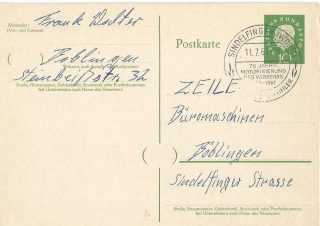 Absender:
Frank Walter
(Vor- und Zuname)
Böblingen
Wohnort, auch Zustell- oder Leitpostamt
Steinbeißstr. 32
Straße, Hausnummer, Gebäudeteil, Stockwerk oder Postfachnummer,
bei Untermietern auch Name des Vermieters
Postkarte
SINDELFINGEN
11.7.6
75 JAHRE
MOTORISIERUNG
DES VERKEHRS
DEUTSCHE BUNDESPOST
10
ZEILE
Büromaschinen
Böblingen
Sindelfinger Strasse
Straße, Hausnummer, Gebäudeteil, Stockwerk oder Postfachnummer,
bei Untermietern auch Name des Vermieters